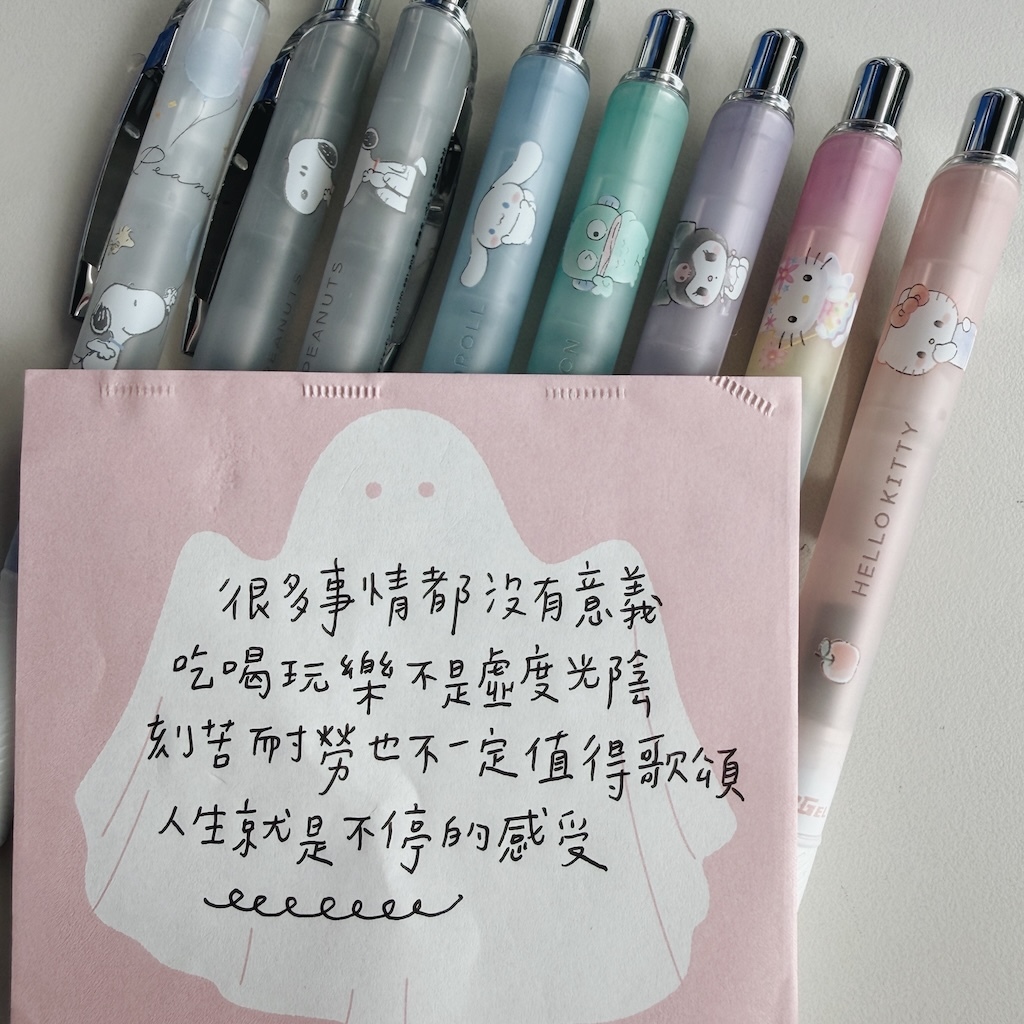 Peanuts
PEANUTS
PEANUTS
HELLO KITTY
很多事情都沒有意義
吃喝玩樂不是虛度光陰
刻苦耐勞也不一定值得歌頌
人生就是不停的感受